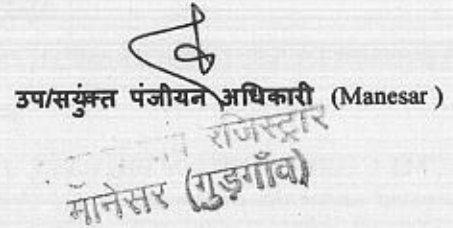 उप/सयुंक्त पंजीयन अधिकारी (Manesar )
रजिस्ट्रार
मानेसर (गुड़गाँव)